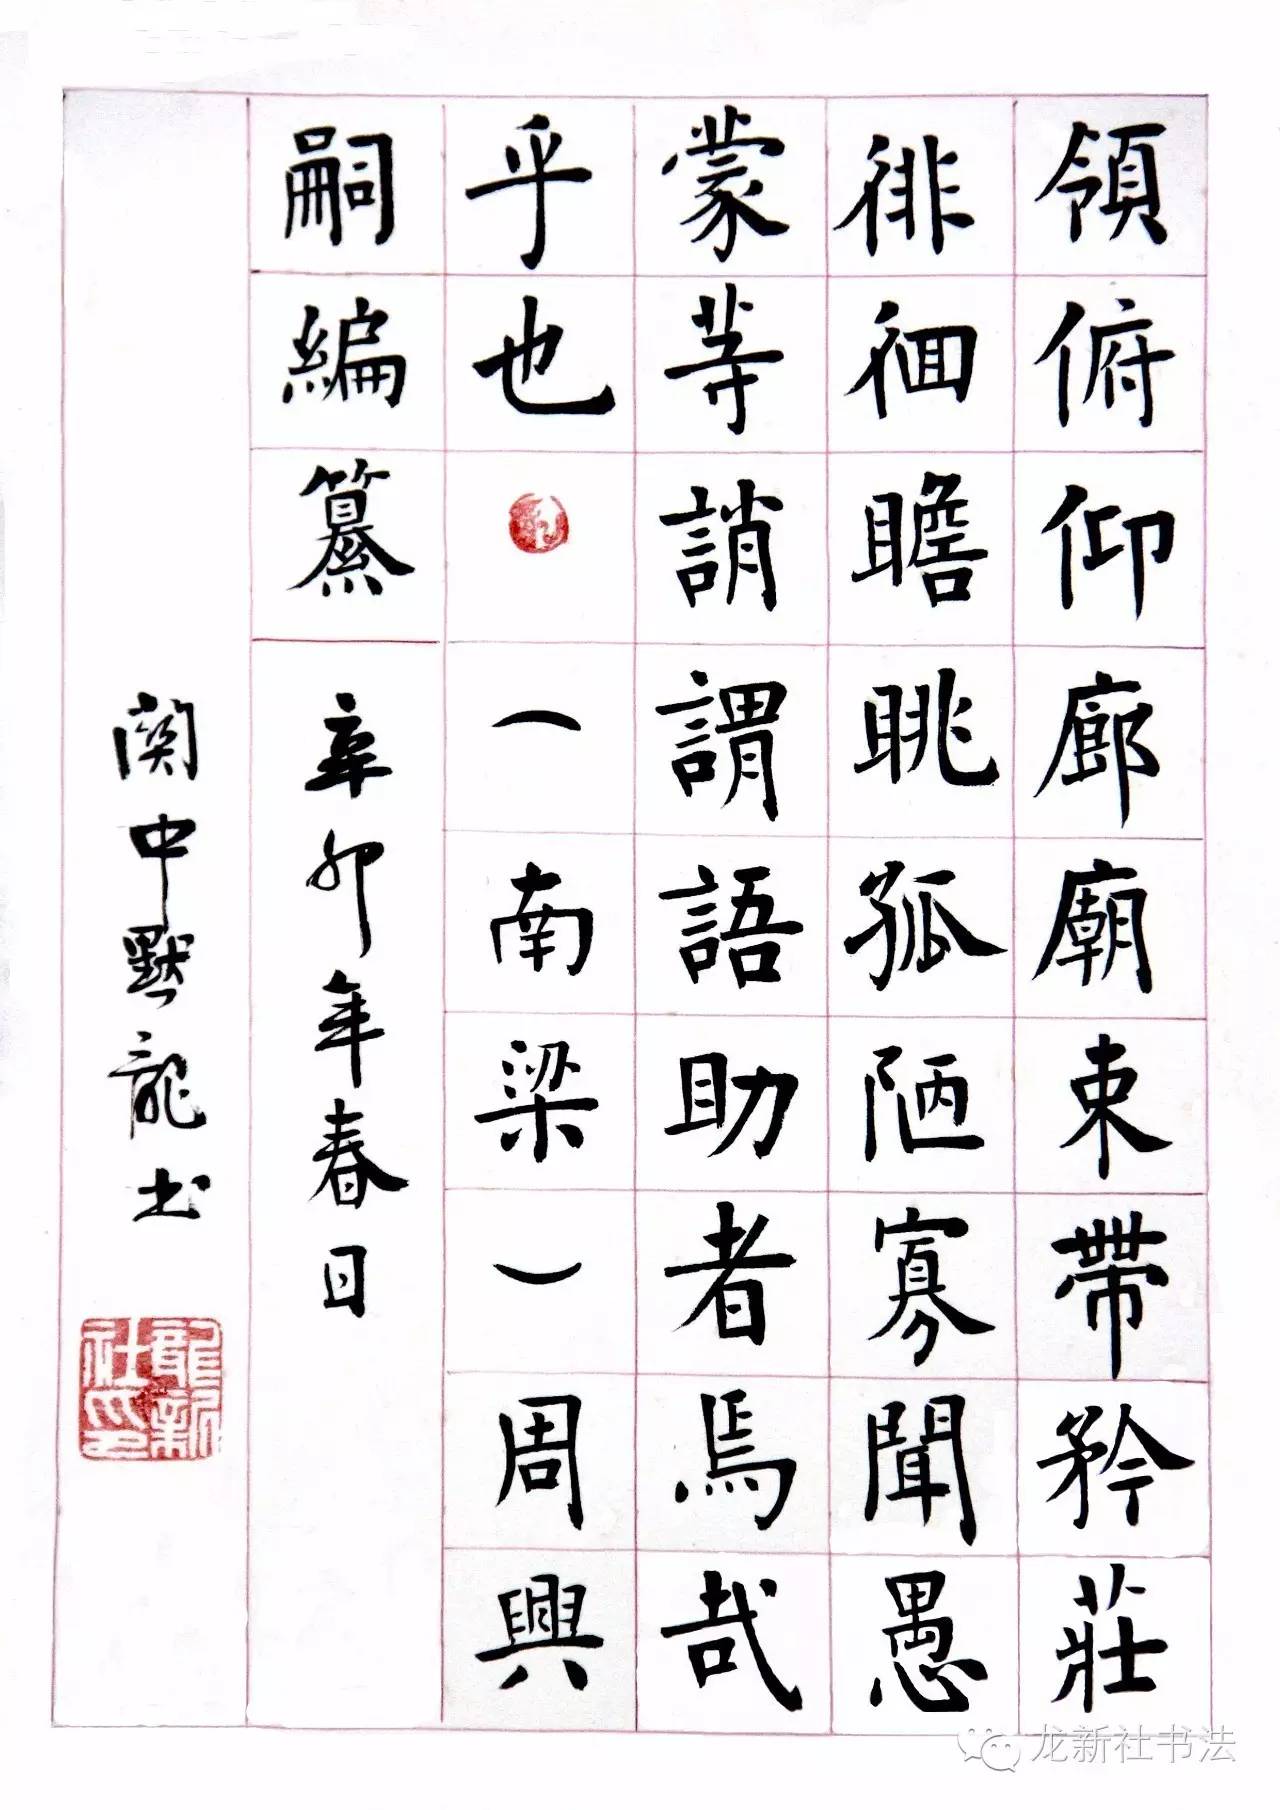 領俯仰廊廟束帶矜莊
徘徊瞻眺孤陋寡聞愚
蒙等誚謂語助者焉哉
乎也（南梁）周興
嗣編纂
辛卯年春日
関中默龍书
龍新社印
龙新社书法